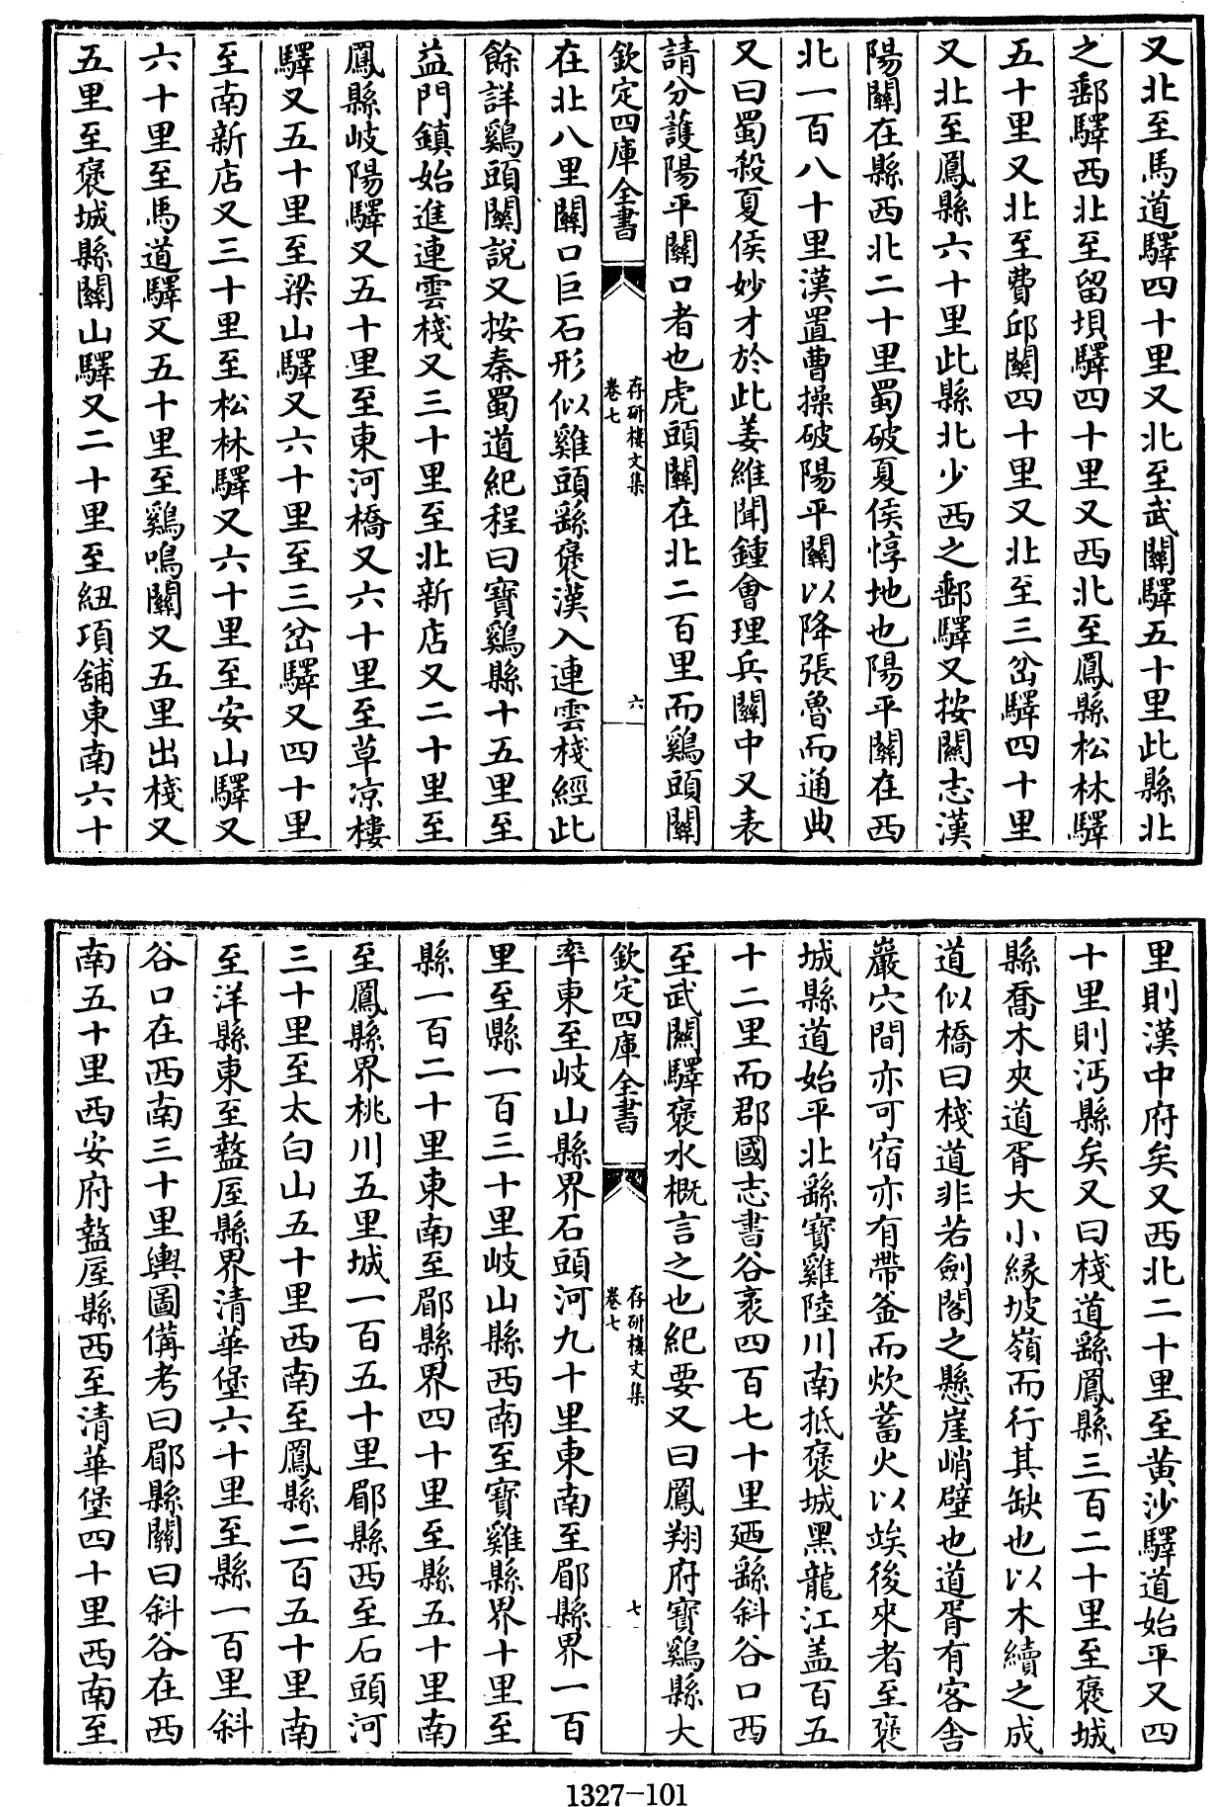 又北至馬道驛四十里又北至武關驛五十里此縣北
之郵驛西北至留壩驛四十里又西北至鳳縣松林驛
五十里又北至費邱關四十里又北至三岔驛四十里
又北至鳳縣六十里此縣北少西之郵驛又按關志漢
陽關在縣西北二十里蜀破夏侯惇地也陽平關在西
北一百八十里漢置曹操破陽平關以降張魯而通典
又曰蜀殺夏侯妙才於此姜維聞鍾會理兵關中又表
請分護陽平關口者也虎頭關在北二百里而鷄頭關
欽定四庫全書
存硏樓文集
卷七
六
在北八里關口巨石形似雞頭繇褒漢入連雲棧經此
餘詳鷄頭關說又按秦蜀道紀程曰寶鷄縣十五里至
益門鎮始進連雲棧又三十里至北新店又二十里至
鳳縣岐陽驛又五十里至東河橋又六十里至草凉樓
驛又五十里至梁山驛又六十里至三岔驛又四十里
至南新店又三十里至松林驛又六十里至安山驛又
六十里至馬道驛又五十里至鷄鳴關又五里出棧又
五里至褒城縣關山驛又二十里至紐項舖東南六十
里則漢中府矣又西北二十里至黃沙驛道始平又四
十里則沔縣矣又曰棧道繇鳳縣三百二十里至褒城
縣喬木夾道胥大小緣坡嶺而行其缺也以木續之成
道似橋曰棧道非若劍閣之懸崖峭壁也道胥有客舍
巖穴間亦可宿亦有帶釜而炊蓄火以竢後來者至褒
城縣道始平北繇寶雞陸川南抵褒城黑龍江盖百五
十二里而郡國志書谷袤四百七十里廼繇斜谷口西
至武關驛褒水概言之也紀要又曰鳳翔府寶鷄縣大
欽定四庫全書
存硏樓文集
卷七
七
率東至岐山縣界石頭河九十里東南至郿縣界一百
里至縣一百三十里岐山縣西南至寶雞縣界十里至
縣一百二十里東南至郿縣界四十里至縣五十里南
至鳳縣界桃川五里城一百五十里郿縣西至石頭河
三十里至太白山五十里西南至鳳縣二百五十里南
至洋縣東至盩厔縣界清華堡六十里至縣一百里斜
谷口在西南三十里輿圖備考曰郿縣關曰斜谷在西
南五十里西安府盩厔縣西至清華堡四十里西南至
1327-101